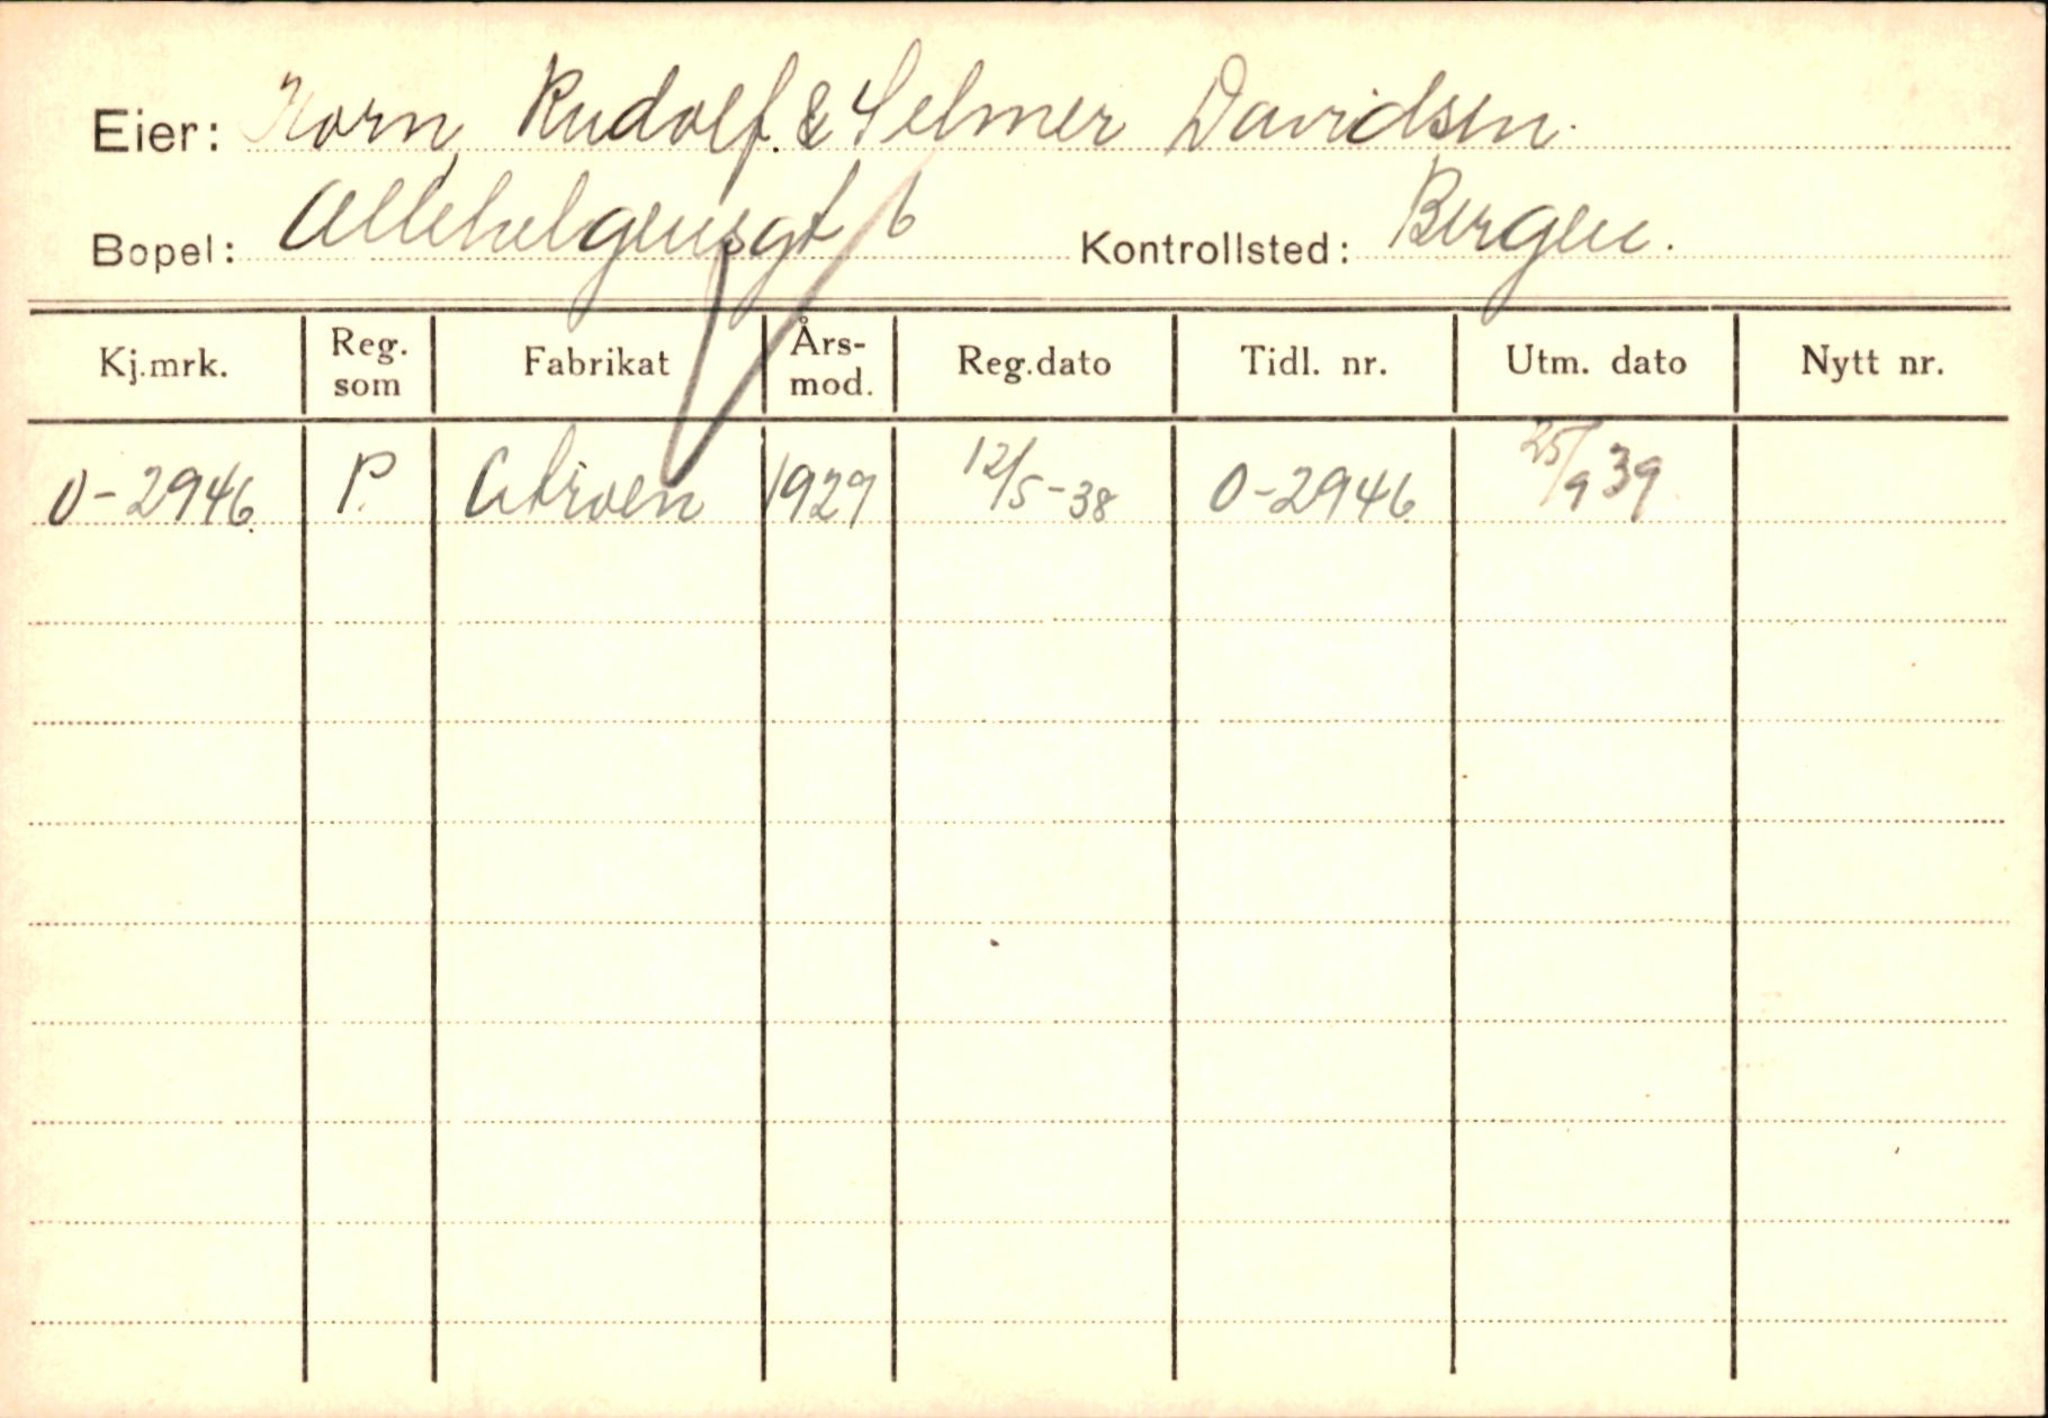 Eier: Korn, Rudolf. & Selmer Davidsen.
Bopel: Allehelgensgt 6 Kontrollsted: Bergen.
Kj.mrk. Reg. som Fabrikat Års-mod. Reg.dato Tidl. nr. Utm. dato Nytt nr.
O-2946. P. Citroen 1929 12/5-38 O-2946 25/9 39